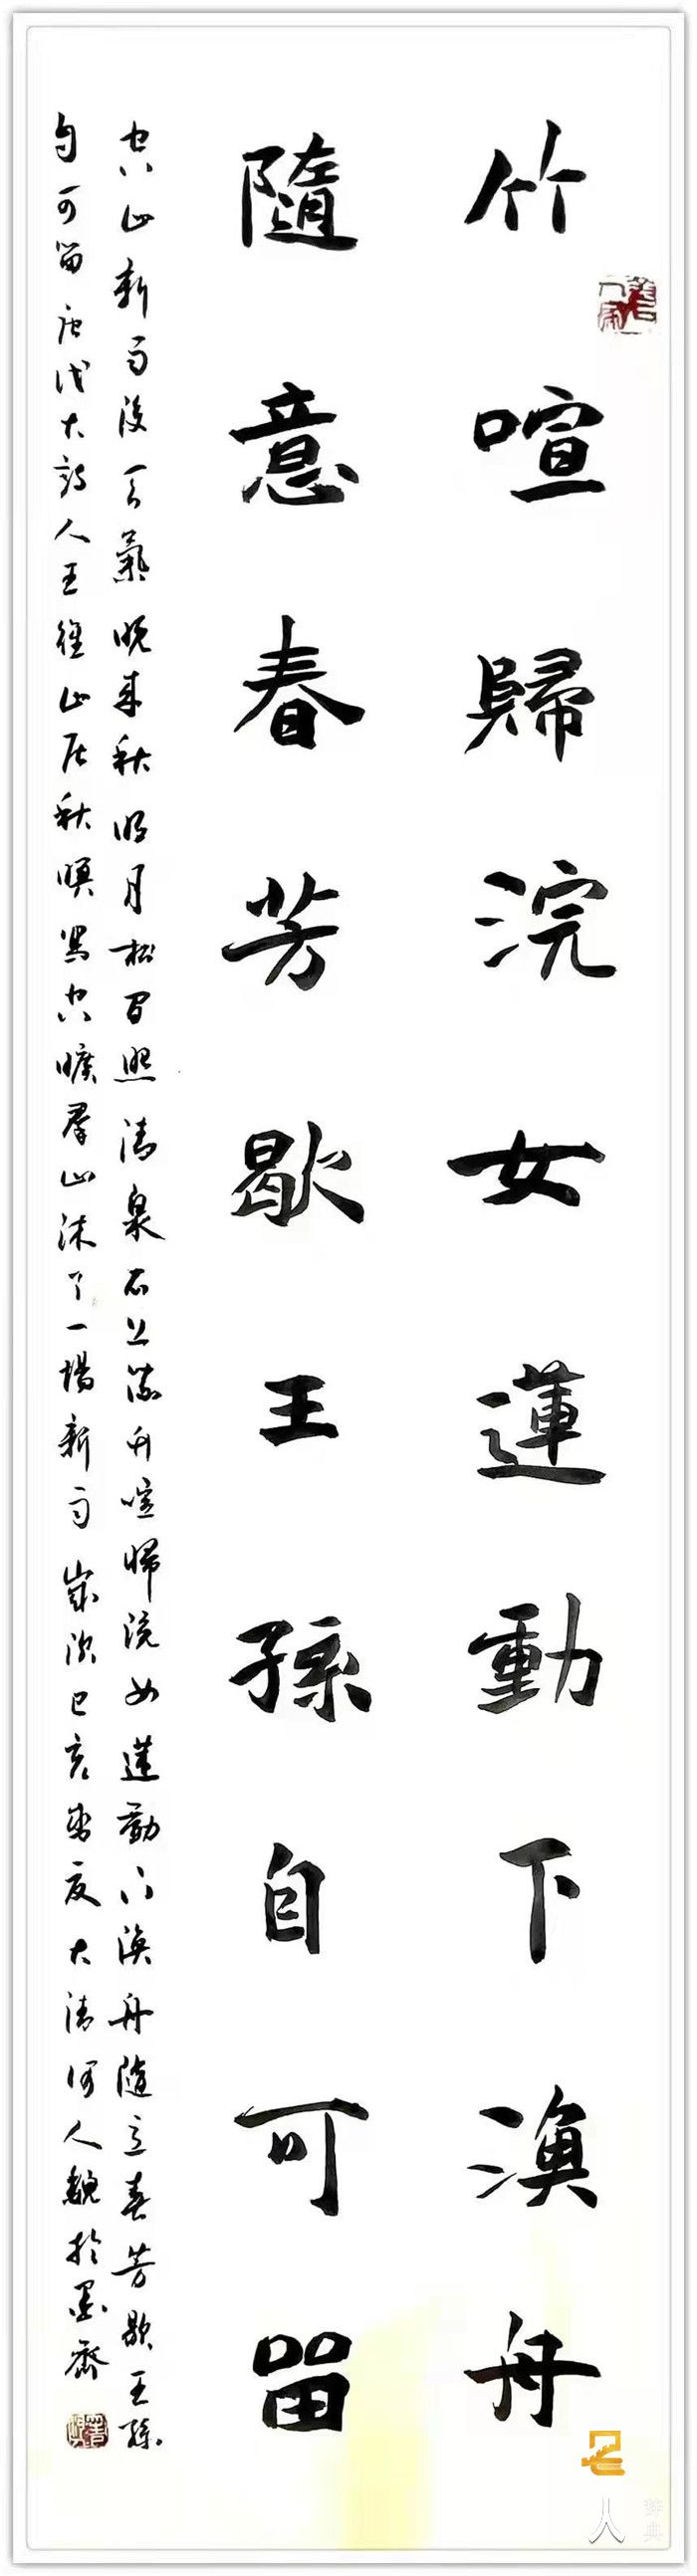 竹喧歸浣女蓮動下漁舟
隨意春芳歇王孫自可留
空山新雨後天氣晚來秋明月松間照清泉石上流竹喧歸浣女蓮動下漁舟隨意春芳歇王孫
自可留唐代大詩人王維山居秋暝寫空曠群山沐了一場新雨歲次己亥夏大清河人魏於墨齋
名人
辞典